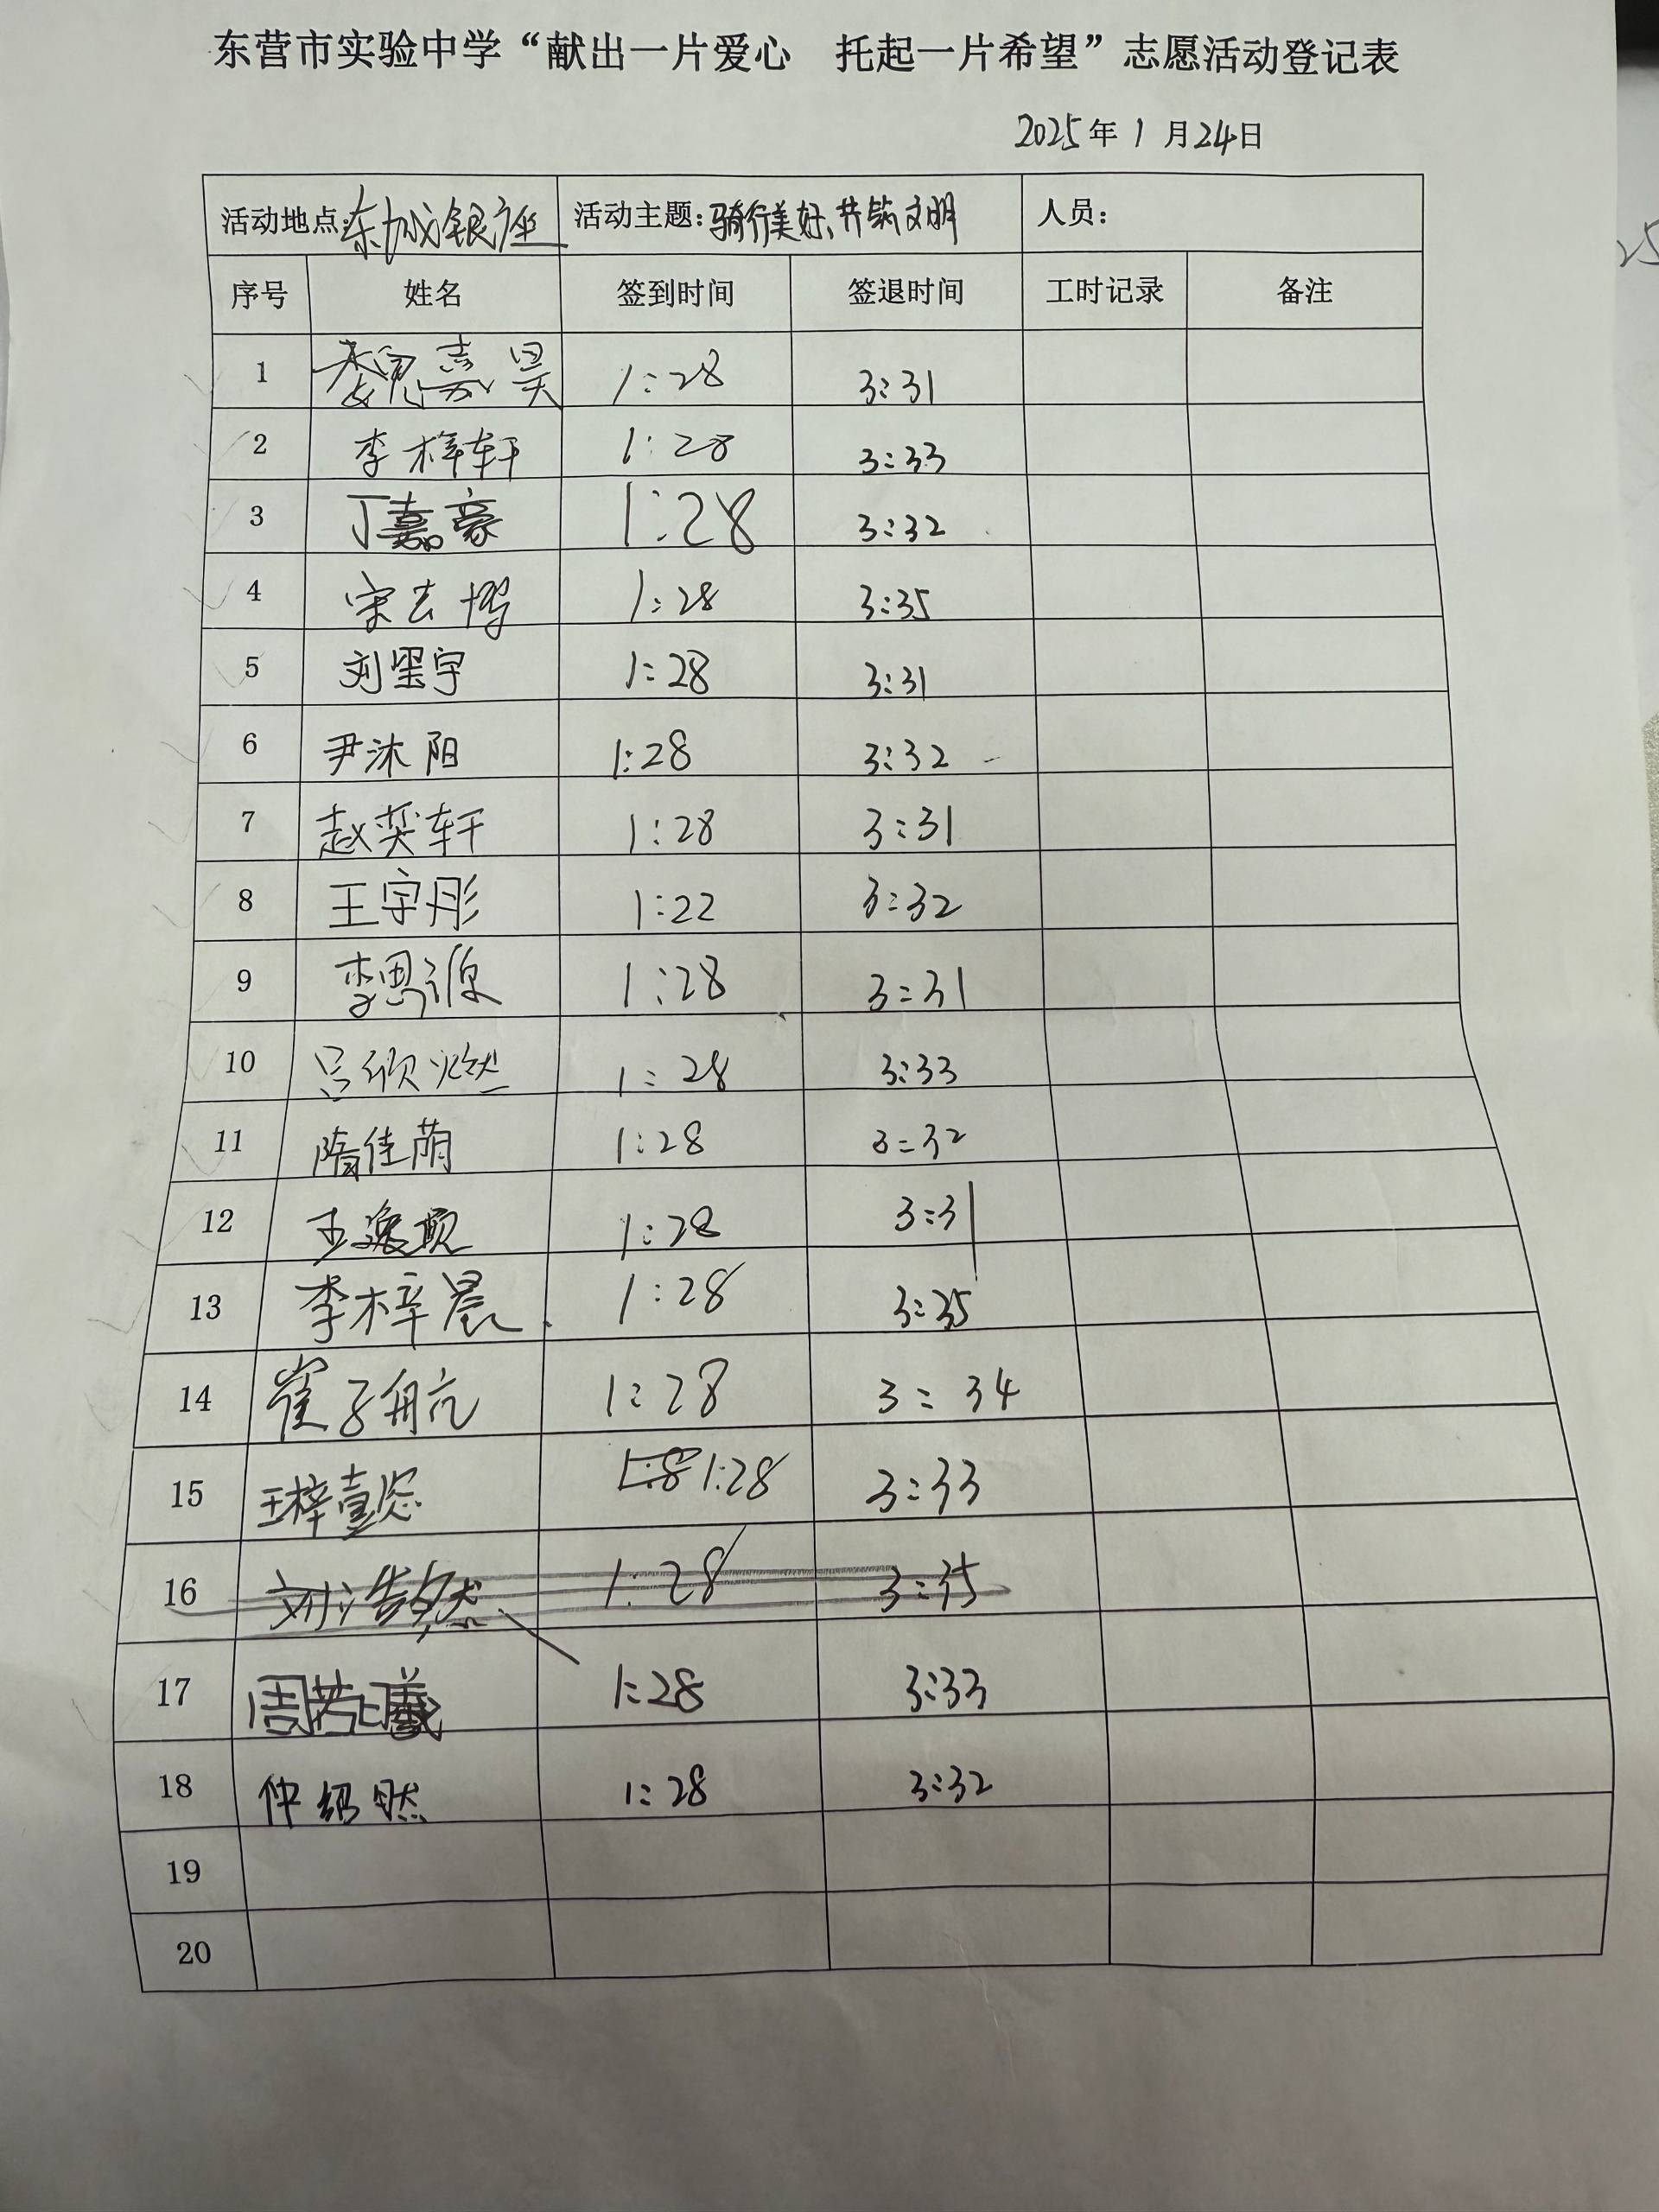 东营市实验中学“献出一片爱心 托起一片希望”志愿活动登记表
2025年1月24日
活动地点:东城银座 活动主题:骑行美好、共筑文明 人员:
序号 姓名 签到时间 签退时间 工时记录 备注
1 嘉昊 1:28 3:31
2 李梓轩 1:28 3:33
3 丁嘉豪 1:28 3:32
4 宋玄博 1:28 3:35
5 刘星宇 1:28 3:31
6 尹沐阳 1:28 3:32
7 赵奕轩 1:28 3:31
8 王宇彤 1:22 3:32
9 李思源 1:28 3:31
10 吕欣燃 1:28 3:33
11 隋佳萌 1:28 3:32
12 王逸 1:28 3:31
13 李梓晨 1:28 3:35
14 崔子航 1:28 3:34
15 王梓懿 1:8 1:28 3:33
16 刘浩然 1:28 3:35
17 周若曦 1:28 3:33
18 仲绍然 1:28 3:32
19
20
25